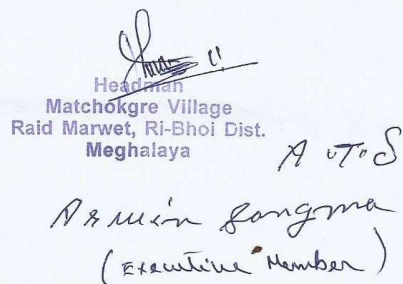 Headman
Matchokgre Village
Raid Marwet, Ri-Bhoi Dist.
Meghalaya
Armin Sangma
(Executive Member)